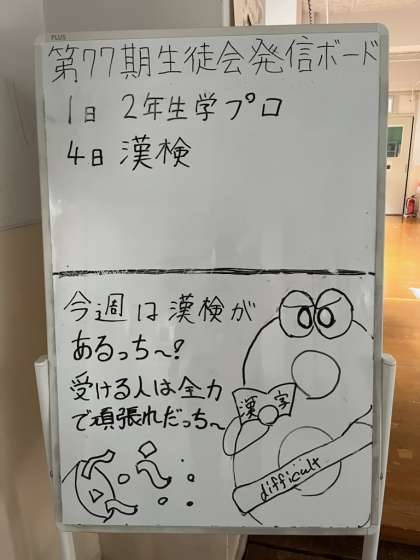 PLUS
第77期生徒会発信ボード
1日 2年生学プロ
4日 漢検
今週は漢検が
あるっち〜!
受ける人は全力
で頑張れだっち〜
漢字
difficult